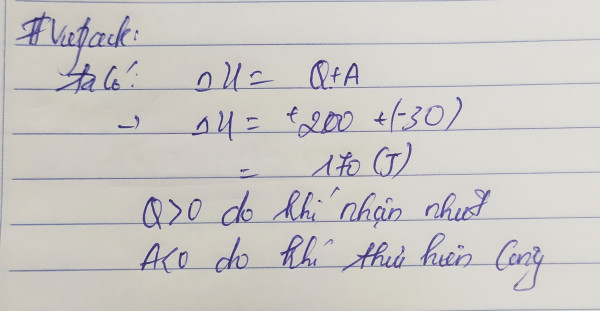 #Vietjack:
Ta có: ΔU = Q+A
→ ΔU = +200 + (-30)
= 170 (J)
Q>0 do khí nhận nhiệt
A<0 do khí thực hiện công